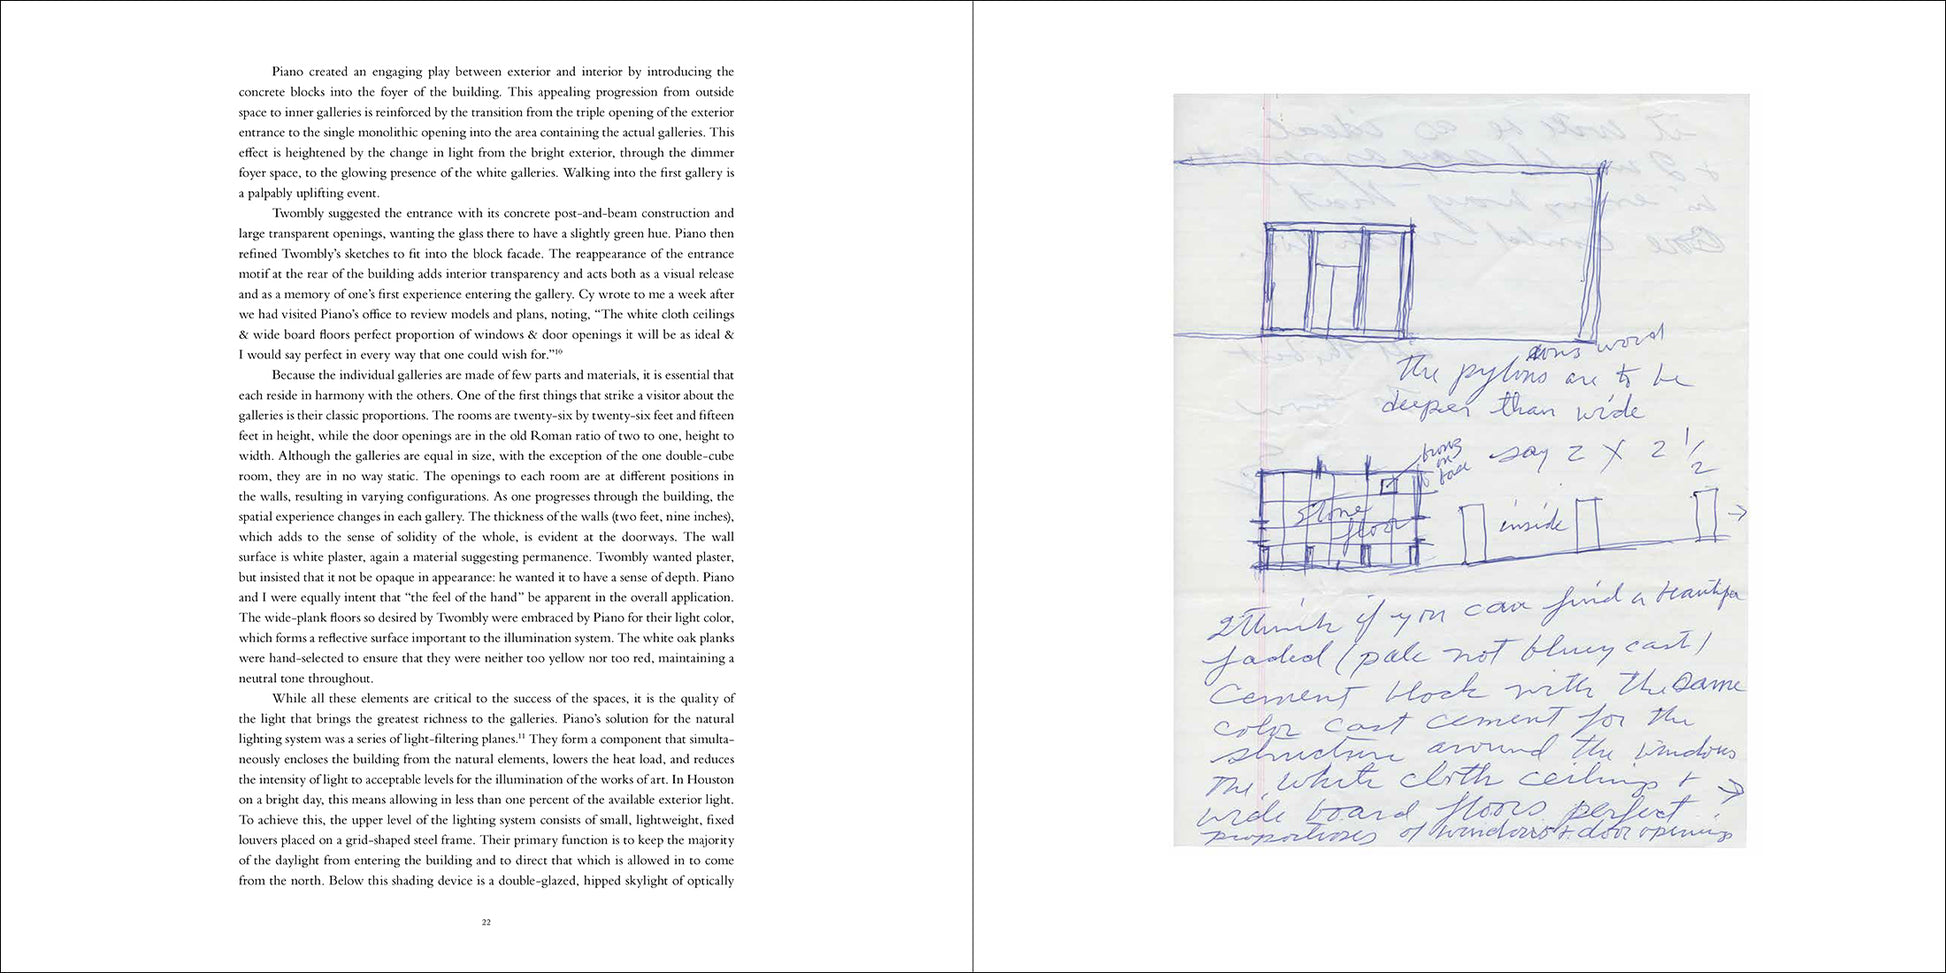 Piano created an engaging play between exterior and interior by introducing the
concrete blocks into the foyer of the building. This appealing progression from outside
space to inner galleries is reinforced by the transition from the triple opening of the exterior
entrance to the single monolithic opening into the area containing the actual galleries. This
effect is heightened by the change in light from the bright exterior, through the dimmer
foyer space, to the glowing presence of the white galleries. Walking into the first gallery is
a palpably uplifting event.
Twombly suggested the entrance with its concrete post-and-beam construction and
large transparent openings, wanting the glass there to have a slightly green hue. Piano then
refined Twombly’s sketches to fit into the block facade. The reappearance of the entrance
motif at the rear of the building adds interior transparency and acts both as a visual release
and as a memory of one’s first experience entering the gallery. Cy wrote to me a week after
we had visited Piano’s office to review models and plans, noting, “The white cloth ceilings
& wide board floors perfect proportion of windows & door openings it will be as ideal &
I would say perfect in every way that one could wish for.”10
Because the individual galleries are made of few parts and materials, it is essential that
each reside in harmony with the others. One of the first things that strike a visitor about the
galleries is their classic proportions. The rooms are twenty-six by twenty-six feet and fifteen
feet in height, while the door openings are in the old Roman ratio of two to one, height to
width. Although the galleries are equal in size, with the exception of the one double-cube
room, they are in no way static. The openings to each room are at different positions in
the walls, resulting in varying configurations. As one progresses through the building, the
spatial experience changes in each gallery. The thickness of the walls (two feet, nine inches),
which adds to the sense of solidity of the whole, is evident at the doorways. The wall
surface is white plaster, again a material suggesting permanence. Twombly wanted plaster,
but insisted that it not be opaque in appearance: he wanted it to have a sense of depth. Piano
and I were equally intent that “the feel of the hand” be apparent in the overall application.
The wide-plank floors so desired by Twombly were embraced by Piano for their light color,
which forms a reflective surface important to the illumination system. The white oak planks
were hand-selected to ensure that they were neither too yellow nor too red, maintaining a
neutral tone throughout.
While all these elements are critical to the success of the spaces, it is the quality of
the light that brings the greatest richness to the galleries. Piano’s solution for the natural
lighting system was a series of light-filtering planes.11 They form a component that simulta-
neously encloses the building from the natural elements, lowers the heat load, and reduces
the intensity of light to acceptable levels for the illumination of the works of art. In Houston
on a bright day, this means allowing in less than one percent of the available exterior light.
To achieve this, the upper level of the lighting system consists of small, lightweight, fixed
louvers placed on a grid-shaped steel frame. Their primary function is to keep the majority
of the daylight from entering the building and to direct that which is allowed in to come
from the north. Below this shading device is a double-glazed, hipped skylight of optically
22
word
The pylons are to be
deeper than wide
say 2 X 2 1/2
stone
floor
inside
I think if you can find a beautiful
faded (pale not bluey cast)
cement block with the same
color cast cement for the
structure around the windows
The white cloth ceilings +
wide board floors perfect
proportions of windows + door openings